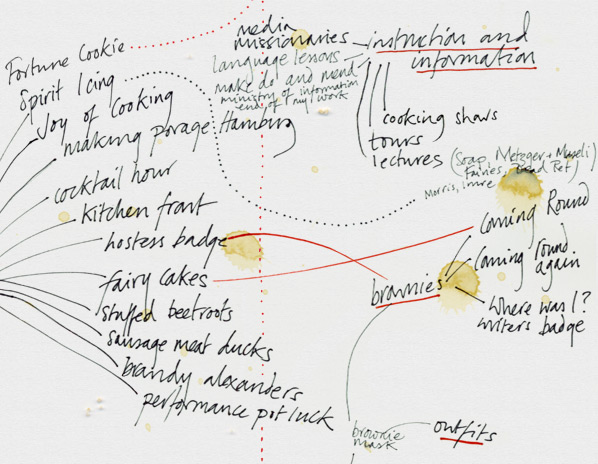 Fortune Cookie
Spirit Icing
Joy of Cooking
making porage Hamburg
cocktail hour
kitchen front
hostess badge
fairy cakes
stuffed beetroots
sausage meat ducks
brandy alexanders
performance pot luck
media
missionaries
language lessons
make do and mend
ministry of information
end of
work
instruction and
information
cooking shows
tours
lectures (Soap, Metzger + Museli)
Fairies, Dead Ref)
Morris,
Coming Round
Coming round
again
brownies
where was I?
writers badge
brownie
mask
outfits